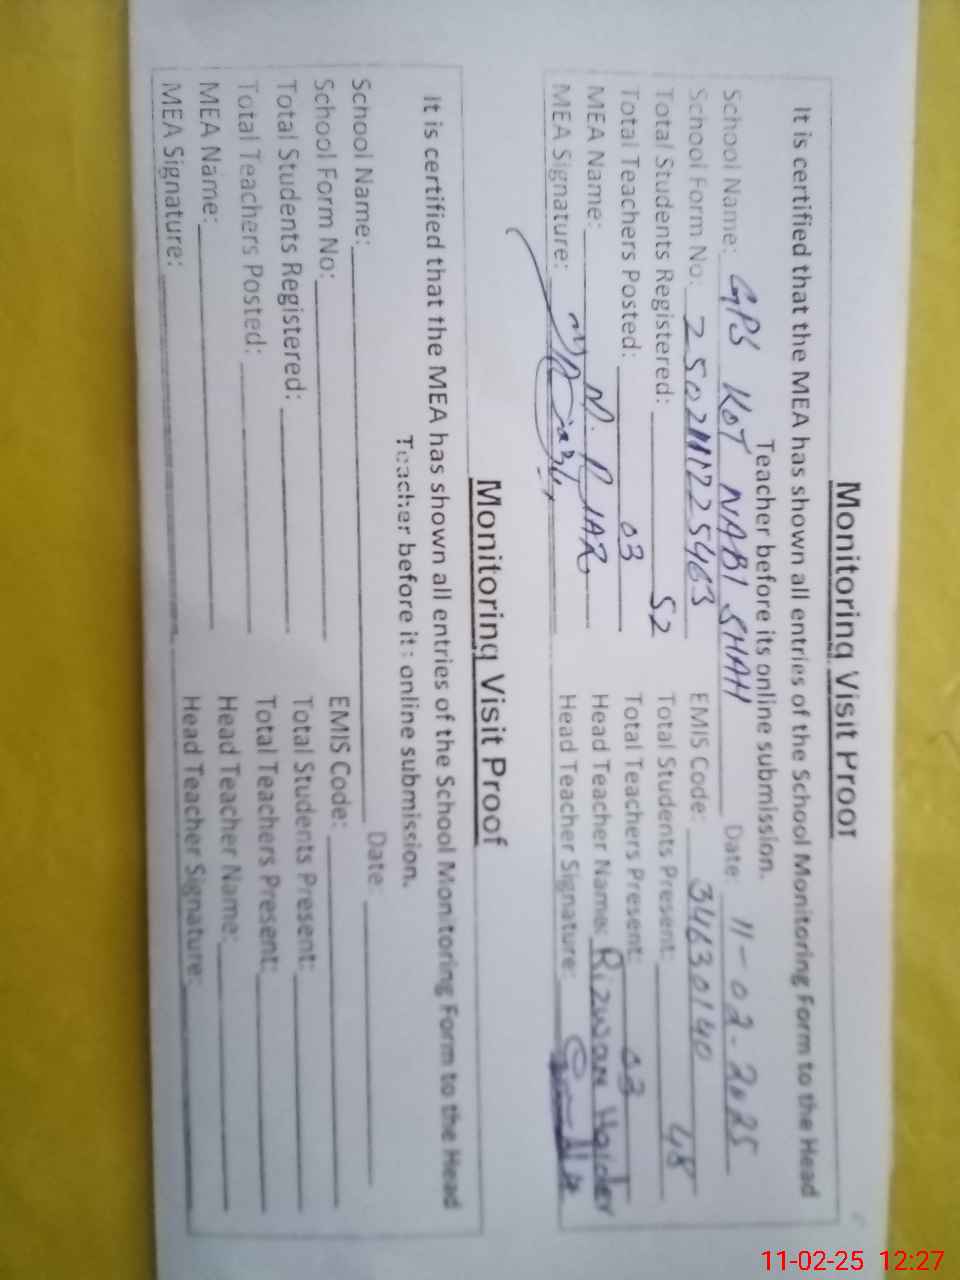 Monitoring Visit Proof
It is certified that the MEA has shown all entries of the School Monitoring Form to the Head
Teacher before its online submission.
School Name: GPS KOT NABI SHAH Date: 11-02-2025
School Form No: EMIS Code: 34630140
Total Students Registered: 52 Total Students Present: 48
Total Teachers Posted: 03 Total Teachers Present: 03
MEA Name: Head Teacher Name: Rizwan Haider
MEA Signature: Head Teacher Signature:
Monitoring Visit Proof
It is certified that the MEA has shown all entries of the School Monitoring Form to the Head
Teacher before its online submission.
School Name: Date:
School Form No: EMIS Code:
Total Students Registered: Total Students Present:
Total Teachers Posted: Total Teachers Present:
MEA Name: Head Teacher Name:
MEA Signature: Head Teacher Signature:
11-02-25 12:27